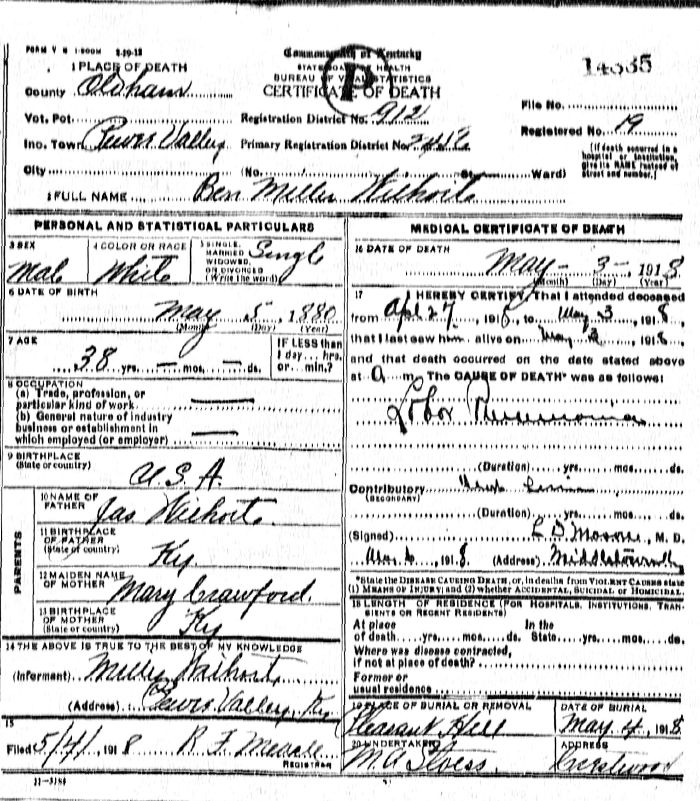 FORM V S 1-500M 2-19-18
Commonwealth of Kentucky
STATE BOARD OF HEALTH
BUREAU OF VITAL STATISTICS
CERTIFICATE OF DEATH
14335
1 PLACE OF DEATH
County Oldham
File No.
Vot. Pct. Registration District No. 912
Registered No. 19
Inc. Town Pewee Valley Primary Registration District No.
[If death occurred in a hospital or institution, give its NAME instead of street and number.]
City (No. St. Ward)
2 FULL NAME Ben Miller
PERSONAL AND STATISTICAL PARTICULARS
3 SEX
Male
4 COLOR OR RACE
White
5 SINGLE, MARRIED WIDOWED, OR DIVORCED (Write the word)
Single
6 DATE OF BIRTH
May 5, 1880
(Month) (Day) (Year)
7 AGE
38 yrs. — mos. — ds.
IF LESS than 1 day... hrs. or... min.?
8 OCCUPATION
(a) Trade, profession, or
particular kind of work
(b) General nature of industry
business or establishment in
which employed (or employer)
9 BIRTHPLACE
(State or country)
U.S.A.
PARENTS
10 NAME OF FATHER
Jas
11 BIRTHPLACE OF FATHER
(State or country)
Ky
12 MAIDEN NAME OF MOTHER
Mary Crawford.
13 BIRTHPLACE OF MOTHER
(State or country)
Ky
14 THE ABOVE IS TRUE TO THE BEST OF MY KNOWLEDGE
(Informant)
(Address) Pewee Valley, Ky
15
Filed 5/4/ 1918 R. F.
REGISTRAR
11-3184
MEDICAL CERTIFICATE OF DEATH
16 DATE OF DEATH
May - 3 - , 1918
(Month) (Day) (Year)
17 I HEREBY CERTIFY, That I attended deceased
from Apl 27, 1918, to May 3, 1918,
that I last saw him alive on May, 1918,
and that death occurred on the date stated above
at a m. The CAUSE OF DEATH* was as follows:
Lobor Pneumonia
(Duration) yrs. mos. ds.
Contributory
(SECONDARY)
(Duration) yrs. mos. ds.
(Signed) M. D.
1918 (Address) Middletown
*State the DISEASE CAUSING DEATH, or, in deaths from VIOLENT CAUSES state
(1) MEANS OF INJURY; and (2) whether ACCIDENTAL, SUICIDAL or HOMICIDAL.
18 LENGTH OF RESIDENCE (FOR HOSPITALS, INSTITUTIONS, TRANSIENTS OR RECENT RESIDENTS)
At place of death yrs. mos. ds. In the State yrs. mos. ds.
Where was disease contracted,
if not at place of death?
Former or
usual residence
19 PLACE OF BURIAL OR REMOVAL
Pleasant Hill
DATE OF BURIAL
May 4, 1918
20 UNDERTAKER
M A Stoess.
ADDRESS
Crestwood